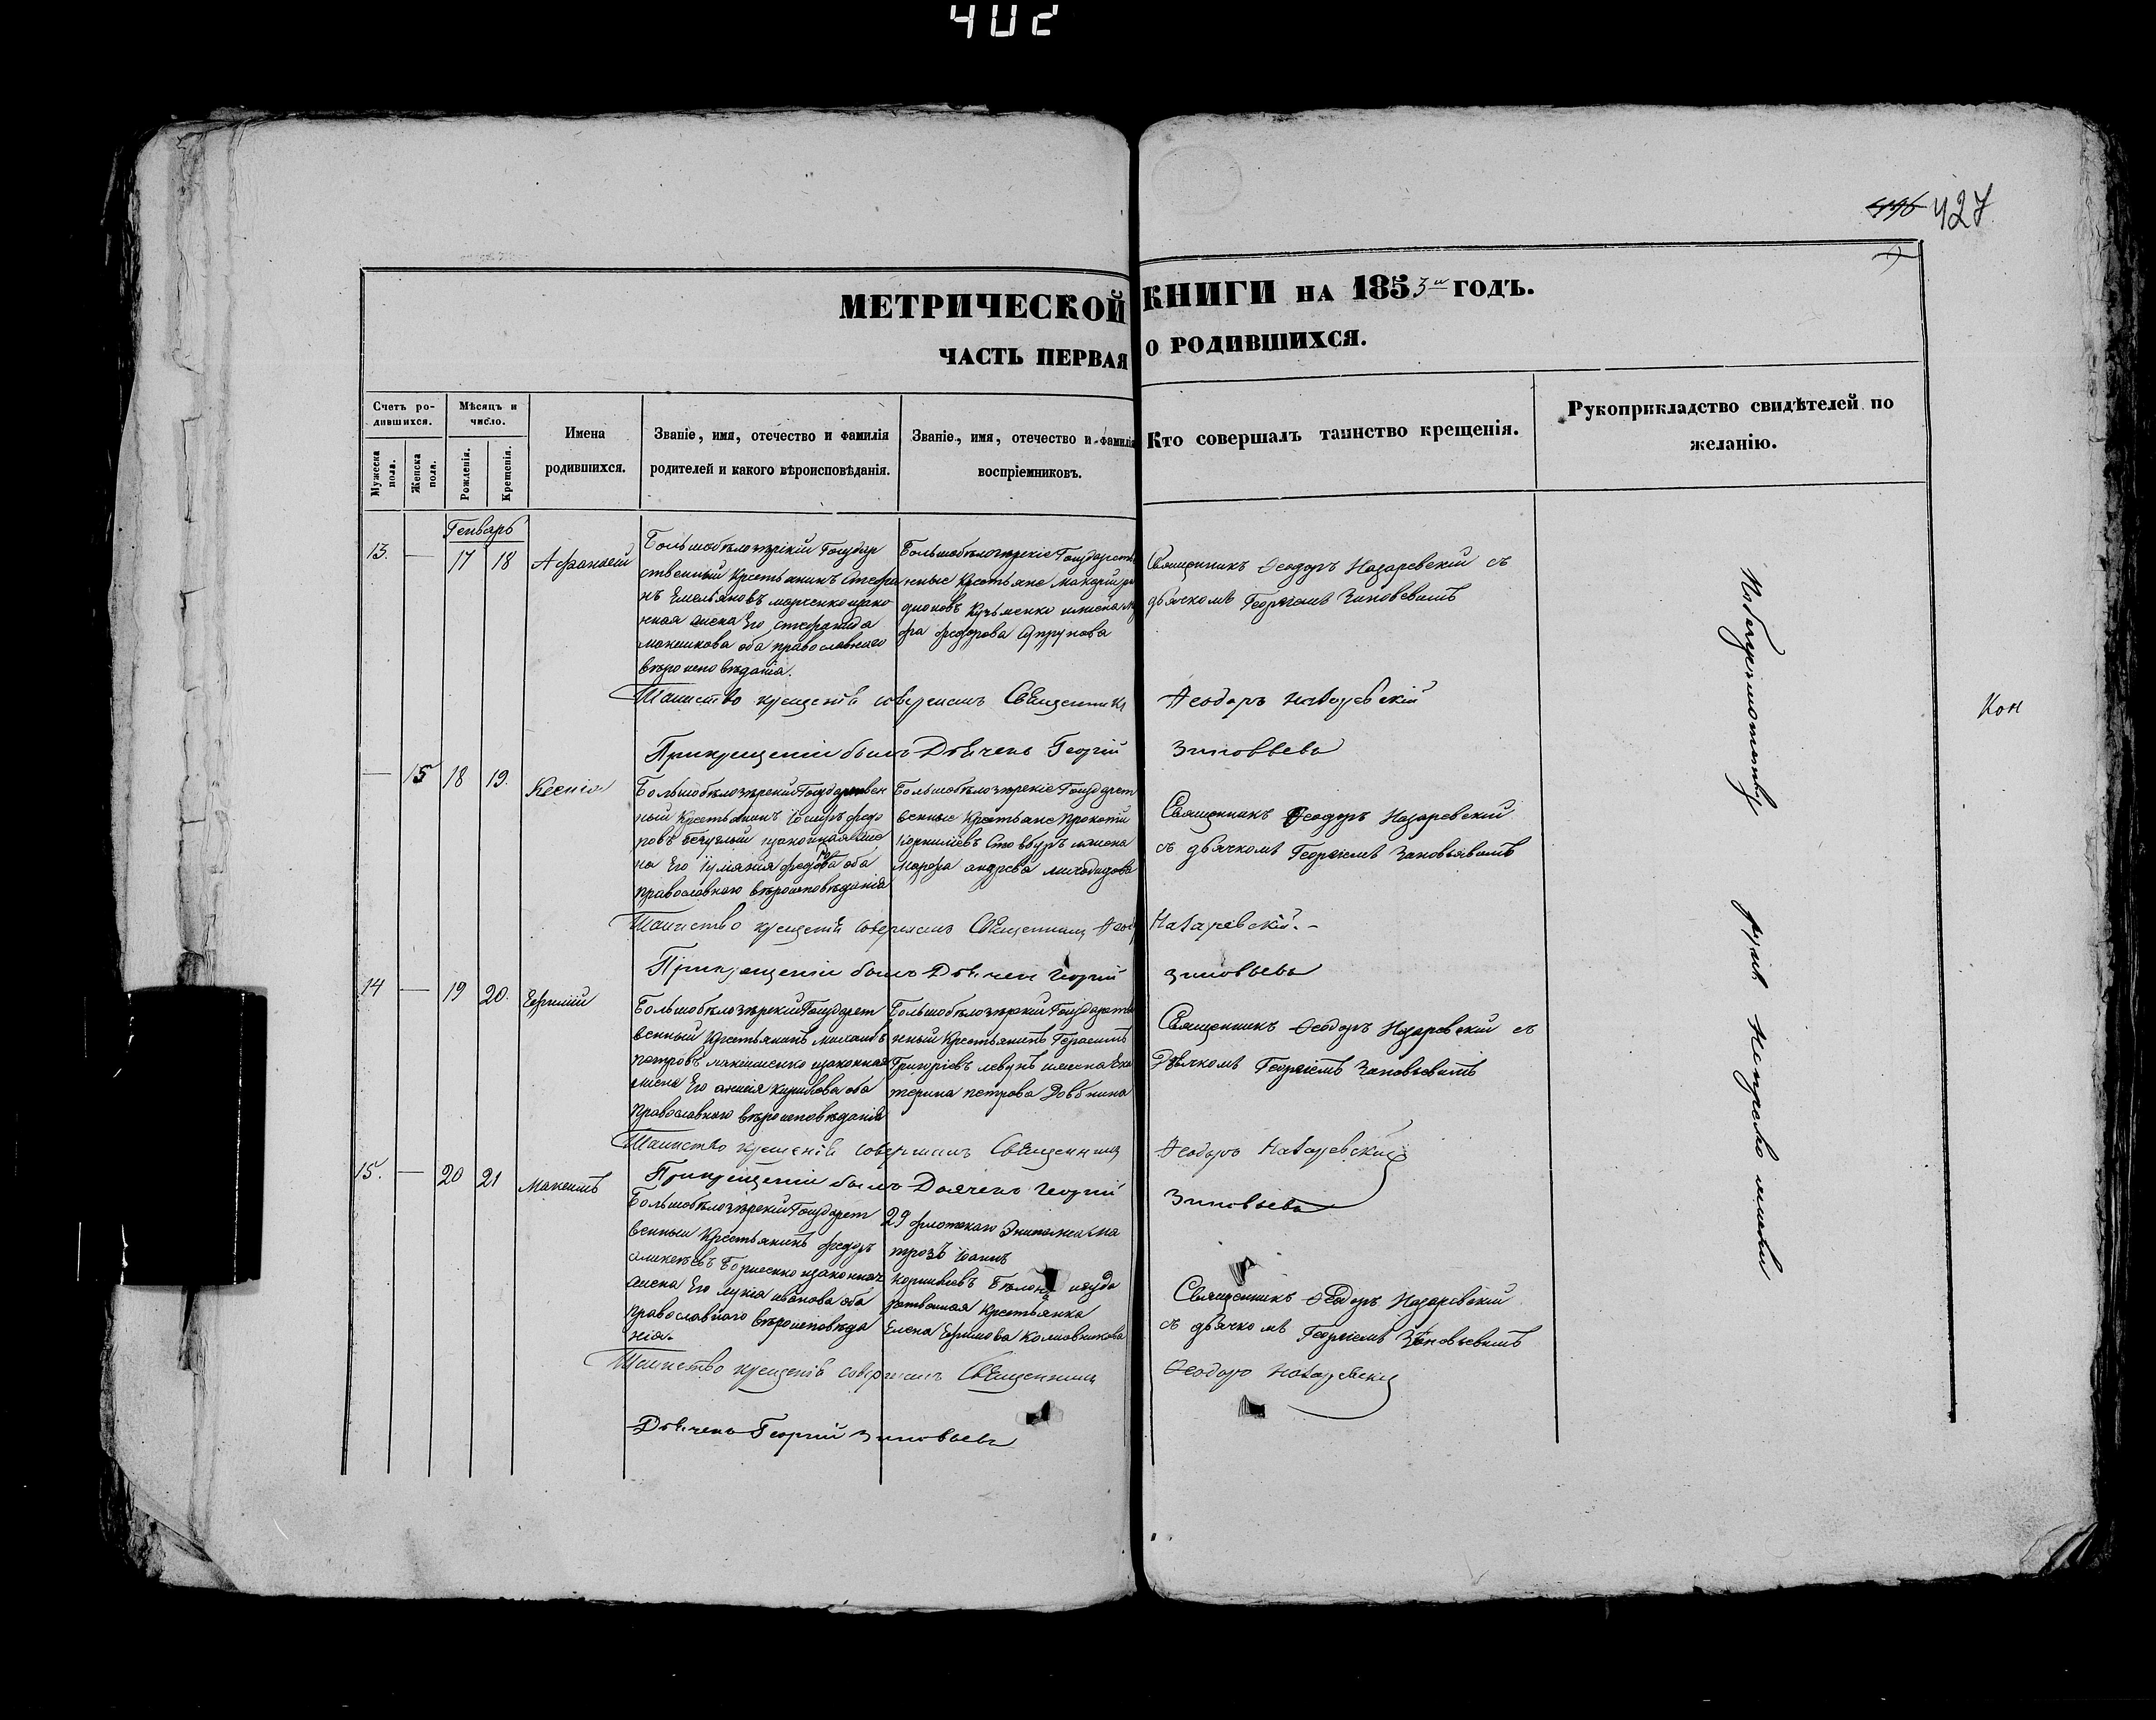 402
427
МЕТРИЧЕСКОЙ КНИГИ НА 1853й ГОДЪ.
ЧАСТЬ ПЕРВАЯ О РОДИВШИХСЯ.
Счетъ ро-
дившихся.
Мужеска
пола.
Женска
пола.
Мѣсяцъ и
число.
Рожденія.
Крещенія.
Имена
родившихся.
Званіе, имя, отечество и фамилія
родителей и какого вѣроисповѣданія.
Званіе, имя, отечество и фамилія
воспріемниковъ.
Кто совершалъ таинство крещенія.
Рукоприкладство свидѣтелей по
желанію.
Генварь
13. — 17 18 Афанасій
Большобѣлозѣрскій Государ
ственный Крестьянинъ Стефа
нъ Емельяновъ марченко изако
нная жена Его стефанида
оба православнаго
вѣроисповѣданія.
Большобѣлозѣрскіе Государств
нные Крестьяне Макарій
діоновъ Кузьменко
федорова Супрунова
Священникъ Ѳеодоръ Назаревскій съ
дьячкомъ Георгіемъ Зиновевымъ
Таинство крещенія совершалъ Священникъ Ѳеодоръ Назаревскій
При крещеніи былъ Дьячекъ Георгій Зиновьевъ
— 15 18 19. Ксенія
Большобѣлозѣрскій Государствен
ный Крестьянинъ федо
ровъ изаконная же
на Его оба
православнаго вѣроисповѣданія
Большобѣлозѣрскіе Государст
венные Крестьяне Прокопій
Корниліевъ Стовбуръ
Марфа андрева
Священникъ Ѳеодоръ Назаревскій
съ дьячкомъ Георгіемъ Зиновьявымъ
Таинство крещенія совершалъ Священникъ Ѳеод Назаревскій.-
При крещеніи былъ Дьячекъ Георгій Зиновьевъ
14 — 19 20. Ефимій
Большобѣлозѣрскій Государст
венный Крестьянинъ Михаилъ
петровъ изаконная
жена Его анисія Кирилова оба
Православнаго вѣроисповѣданія
Большобѣлозѣрскій Государств
нный Крестьянинъ Герасимъ
Григоріевъ левунъ Ека
терина петрова
Священникъ Ѳеодоръ Назаревскій съ
Дьячкомъ Георгіемъ Зиновьевымъ
Таинство крещенія совершалъ Священникъ Ѳеодоръ Назаревскій
При крещеніи былъ Дьячекъ Георгій Зиновьевъ
15. — 20 21 Максимъ
Большобѣлозѣрскій Государст
венный Крестьянинъ федоръ
алексѣевъ изаконная
жена Его лукія иванова оба
православнаго вѣроисповѣда
нія.
29 флотскаго Экипажа ма
трозъ іоаннъ
Корниліевъ
крестьянка
Елена Ефимова
Священникъ Ѳеодоръ Назаревскій
съ дьячкомъ Георгіемъ Зиновьевымъ
Таинство крещенія совершалъ Священникъ Ѳеодоръ Назаревскій
Дьячекъ Георгій Зиновьевъ